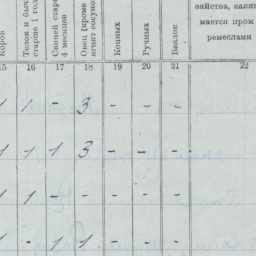 Коров
Телок и бычк
старше 1 год
Свиней стар
4 месяцев
Овец (кроме
ягнят сосуно
Конных
Ручных
Веялок
зяйства, каким
мается пром
ремеслами
15 16 17 18 19 20 21 22
1 1 - 3 - - -
1 1 1 3 - - -
1 1 - - - - -
1 - 1 1 - - -